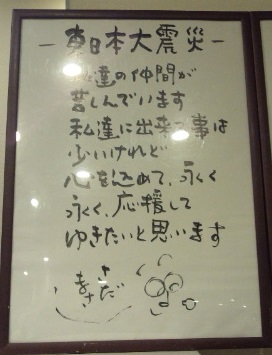 －東日本大震災－
私達の仲間が
苦しんでいます
私達に出来る事は
少いけれど
心を込めて、永く
永く、応援して
ゆきたいと思います
まさだ